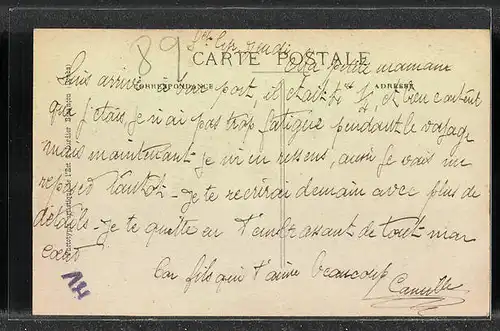 89
St Cyr, Jeudi
CARTE POSTALE
Ma petite maman
CORRESPONDANCE
ADRESSE
Suis arrivé à bon port, il était et bien content
que j'étais, je n'ai pas trop fatigué pendant le voyage
mais maintenant je m'en ressens, aussi je vais me
tantôt. Je te récrirai demain avec plus de
détails. Je te quitte en t'embrassant de tout mon
Cœur
Ton fils qui t'aime beaucoup
Camille